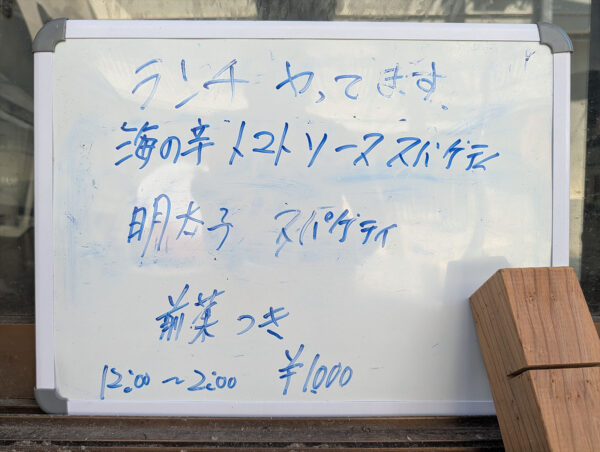 ランチ やってます
海の辛トマトソーススパゲティ
明太子 スパゲティ
前菜つき
12:00〜2:00 ¥1,000